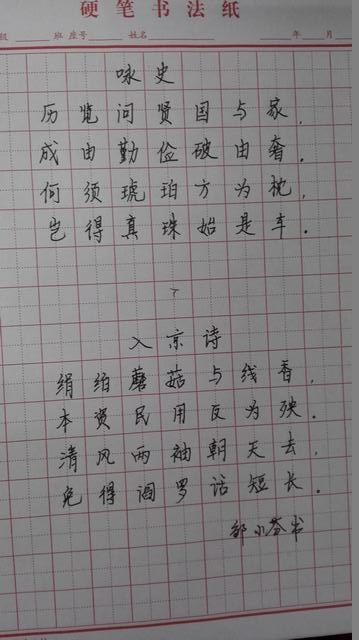 硬笔书法纸
级 班 座号 姓名 年 月
咏史
历览问贤国与家,
成由勤俭破由奢.
何须琥珀方为枕,
岂得真珠始是车.
入京诗
绢蘑菇与线香,
本资民用反为殃.
清风两袖朝天去,
免得阎罗话短长.
邹小芬书